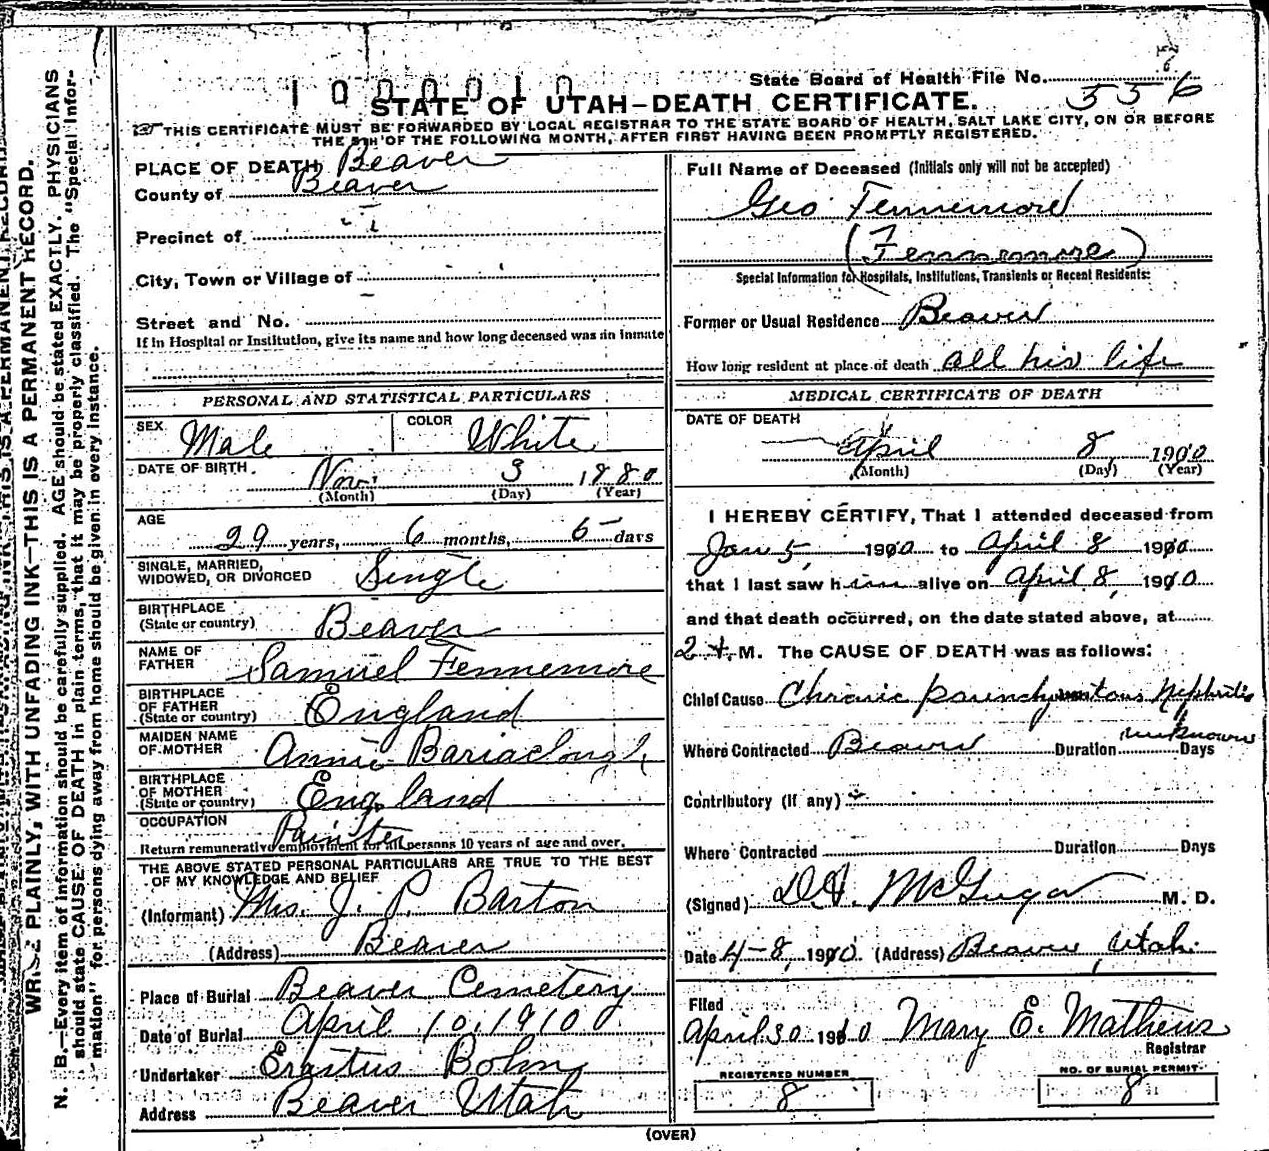 WRITE PLAINLY, WITH UNFADING INK—THIS IS A PERMANENT RECORD.
N. B.—Every item of information should be carefully supplied. AGE should be stated EXACTLY. PHYSICIANS
should state CAUSE OF DEATH in plain terms, that it may be properly classified. The "Special Infor-
mation" for persons dying away from home should be given in every instance.
State Board of Health File No. 556
STATE OF UTAH—DEATH CERTIFICATE.
THIS CERTIFICATE MUST BE FORWARDED BY LOCAL REGISTRAR TO THE STATE BOARD OF HEALTH, SALT LAKE CITY, ON OR BEFORE
THE 5TH OF THE FOLLOWING MONTH, AFTER FIRST HAVING BEEN PROMPTLY REGISTERED.
PLACE OF DEATH Beaver
County of Beaver
Precinct of
City, Town or Village of
Street and No.
If in Hospital or Institution, give its name and how long deceased was an inmate
PERSONAL AND STATISTICAL PARTICULARS
SEX Male COLOR White
DATE OF BIRTH Nov. 3 1880
(Month) (Day) (Year)
AGE
29 years, 6 months, 5 days
SINGLE, MARRIED,
WIDOWED, OR DIVORCED Single
BIRTHPLACE
(State or country) Beaver
NAME OF
FATHER Samuel Fennemore
BIRTHPLACE
OF FATHER
(State or country) England
MAIDEN NAME
OF MOTHER Annie Bariaclough
BIRTHPLACE
OF MOTHER
(State or country) England
OCCUPATION Painter
Return remunerative employment for all persons 10 years of age and over.
THE ABOVE STATED PERSONAL PARTICULARS ARE TRUE TO THE BEST
OF MY KNOWLEDGE AND BELIEF
(Informant) Mrs. J. P. Barton
(Address) Beaver
Place of Burial Beaver Cemetery
Date of Burial April 10, 1910
Undertaker Erastus Bohn
Address Beaver Utah
Full Name of Deceased (Initials only will not be accepted)
Geo Fennemore
(Fennemore)
Special Information for Hospitals, Institutions, Transients or Recent Residents:
Former or Usual Residence Beaver
How long resident at place of death all his life
MEDICAL CERTIFICATE OF DEATH
DATE OF DEATH
April 8, 1900
(Month) (Day) (Year)
I HEREBY CERTIFY, That I attended deceased from
Jan 5, 1910 to April 8 1910
that I last saw him alive on April 8, 1910
and that death occurred, on the date stated above, at
2 A. M. The CAUSE OF DEATH was as follows:
Chief Cause Chronic parenchymatous Nephritis
Where Contracted Beaver Duration unknown Days
Contributory (if any)
Where Contracted Duration Days
(Signed) McGugar M. D.
Date 4-8, 1910. (Address) Beaver, Utah.
Filed
April 30 1910 Mary E. Mathews
Registrar
REGISTERED NUMBER
8
NO. OF BURIAL PERMIT
8
(OVER)